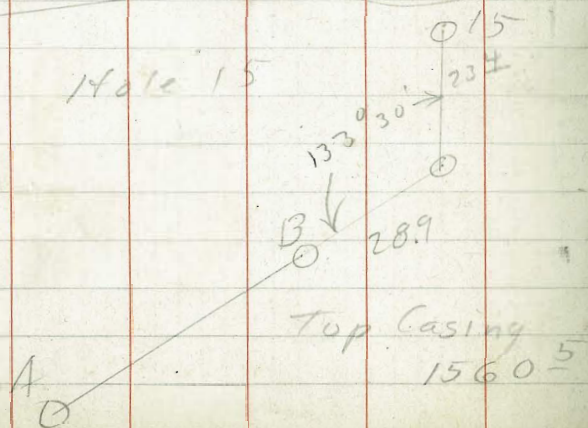 15
Hole 15
23 4
133° 30'
B
28.9
Top Casing
1560 5
A